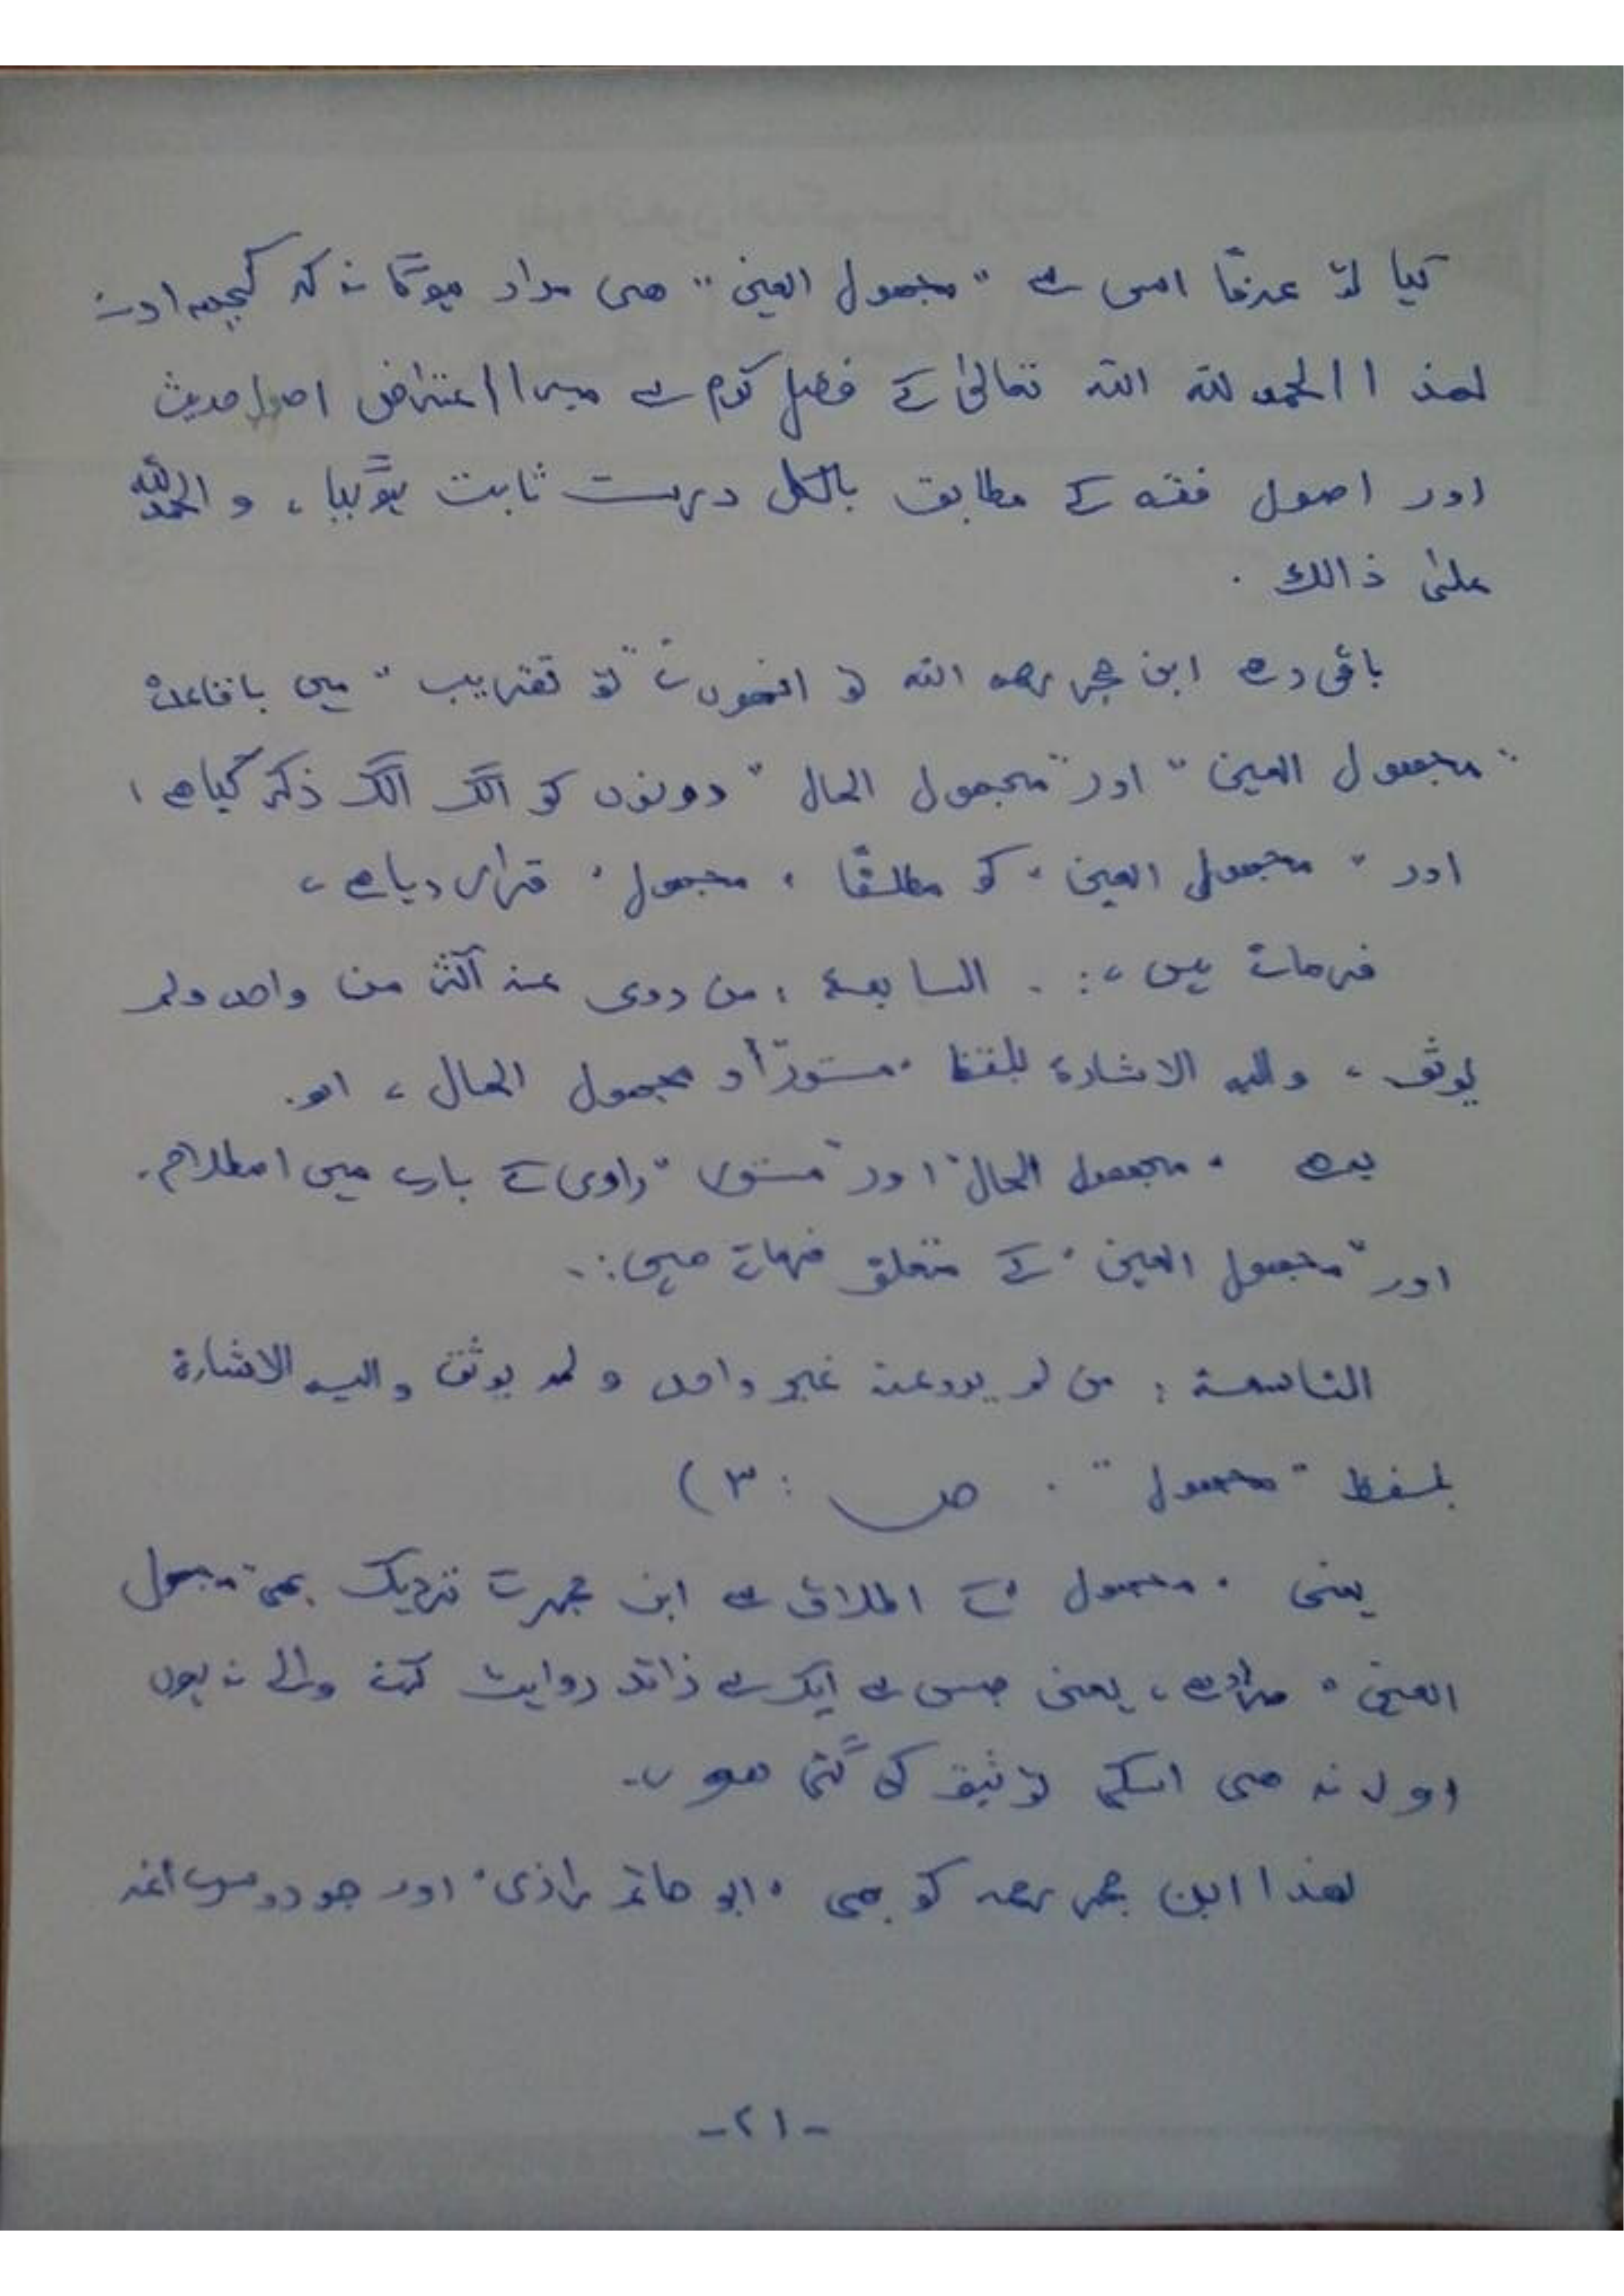 کیا تو عرفًا اس سے "مجھول العین" ھی مراد ہوگا نہ کہ کچھ اور
لھذا الحمد للہ اللہ تعالیٰ کے فضل کرم سے میرا اعتراض اصول حدیث
اور اصول فقہ کے مطابق بالکل درست ثابت ہوگیا، و الحمد للہ
علیٰ ذالك .
باقی رہے ابن حجر رحمہ اللہ تو انھوں نے "تو تقریب" میں باقاعدہ
"مجھول العین" اور "مجھول الحال" دونوں کو الگ الگ ذکر کیا ھے،
اور "مجھول العین" کو مطلقًا "مجھول" قرار دیا ھے،
فرماتے ہیں،:. السابعة: من روى عنه اكثر من واحد ولم
يوثق، واليه الاشارة بلفظ مستور أو مجهول الحال، اھ.
یہ ھے "مجھول الحال" اور "مستور" راوی کے بارے میں اصطلاح.
اور "مجھول العین" کے متعلق فرماتے ھیں:.
التاسعة: من لم يرو عنه غير واحد و لم يوثق واليه الاشارة
بلفظ "مجهول". ص: ٣)
یعنی "مجھول" کے اطلاق سے ابن حجر کے نزدیک بھی "مجھول
العین" مراد ھے، یعنی جس سے ایک سے زائد روایت کرنے والے نہ ہوں
اور نہ ھی اسکی توثیق کی گئی ھو.
لھذا ابن حجر رحمہ کو بھی "ابو حاتم رازی" اور جو دوسرے ائمہ
-٢١-